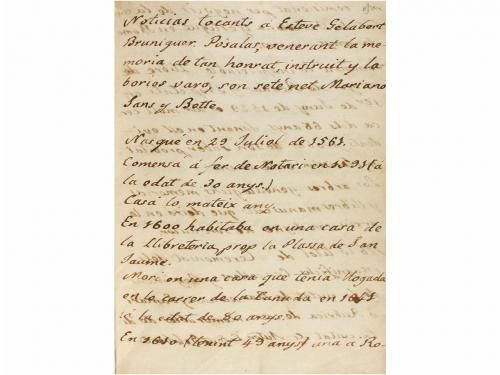 Noticias tocants á Esteve Gelabert
Bruniquer. Posalas, venerant la me
moria de tan honrat, instruit y la
boriós varo, son seté net Mariano
Sans y Botte.
Nasqué en 29 Juliol de 1561.
Comensa á fer de Notari en 1591 (á
la edat de 30 anys.)
Casá lo mateix any.
En 1600 habitaba en una casa de
la Llibreteria, prop la Plassa de San
Jaume.
Mori en una casa que tenia llogada
en lo carrer de la Canuda en 1641
á la edat de 80 anys.
En 1610 (tenint 49 anys) aná á Ro-